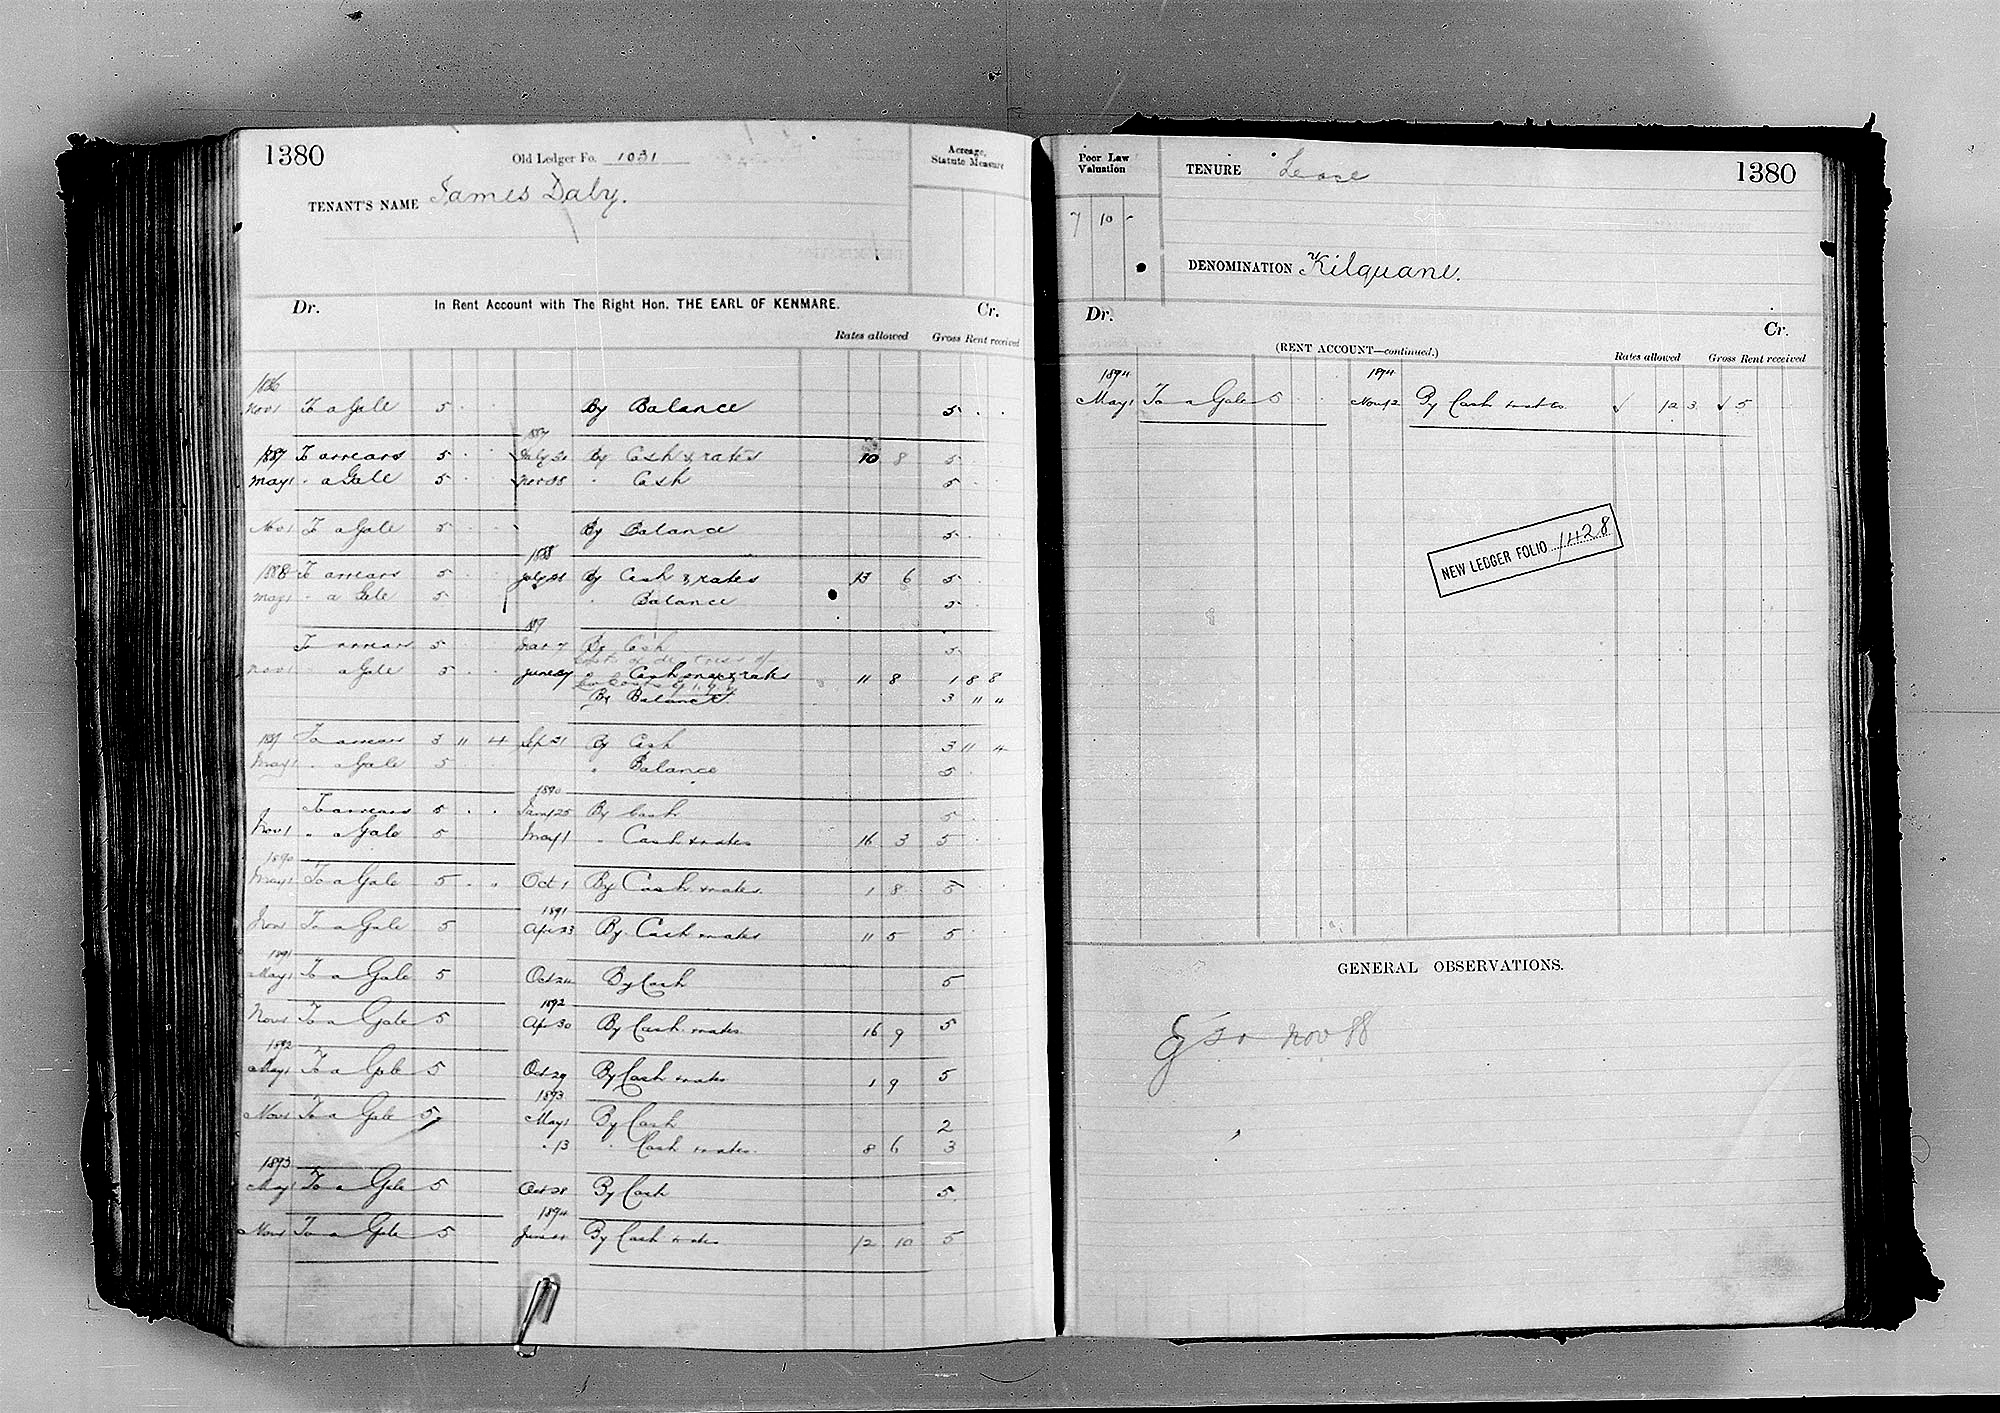 1380 Old Ledger Fo. 1031 Acreage, Statute Measure
TENANT'S NAME James Daly.
Dr. In Rent Account with The Right Hon. THE EARL OF KENMARE. Cr.
Rates allowed Gross Rent received
1886
Nov 1 To a Gale 5 . . By Balance 5 . .
1887
1887 To arrears 5 . . July By Cash & rates 10 8 5 . .
May 1 " a Gale 5 . . Nov " Cash 5 . .
Nov 1 To a Gale 5 . . By Balance 5 . .
1888
1888 To arrears 5 . . July By Cash & rates 13 6 5
May 1 " a Gale 5 . . " Balance 5 . .
To arrears 5 . . Mar 7 By Cash 5 . .
Nov 1 " a Gale 5 . . June Cash & rates 11 8 1 8 8
By Balance 3 11 4
To arrears 3 11 4 Sep 21 By Cash 3 11 4
May 1 " a Gale 5 . . " Balance 5 . .
1890
To arrears 5 . . Jany 25 By Cash 5 . .
Nov 1 " a Gale 5 May 1 " Cash & rates 16 3 5 . .
1890
May 1 To a Gale 5 . . Oct 1 By Cash & rates 1 8 5 . .
1891
Nov 1 To a Gale 5 Apr 23 By Cash & rates 11 5 5 . .
1891
May 1 To a Gale 5 Oct 24 By Cash 5
1892
Nov 1 To a Gale 5 Apr 30 By Cash & rates 16 9 5
1892
May 1 To a Gale 5 Oct 29 By Cash & rates 1 9 5
1893
Nov 1 To a Gale 5 May 1 By Cash 2
" 13 " Cash & rates 8 6 3
1893
May 1 To a Gale 5 Oct 28 By Cash 5
1894
Nov 1 To a Gale 5 June By Cash & rates 12 10 5
Poor Law Valuation TENURE Lease 1380
7 10 -
DENOMINATION Kilquane.
Dr. Cr.
(RENT ACCOUNT—continued.) Rates allowed Gross Rent received
1894 1894
May 1 To a Gale 5 Nov 12 By Cash & rates 12 3 5
NEW LEDGER FOLIO 1428
GENERAL OBSERVATIONS.
Nov 88